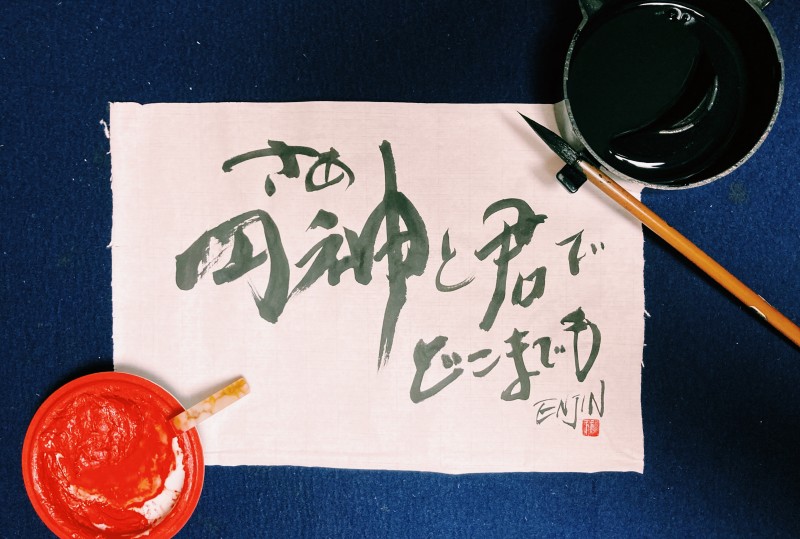 さあ
円神と君で
どこまでも
ENJIN